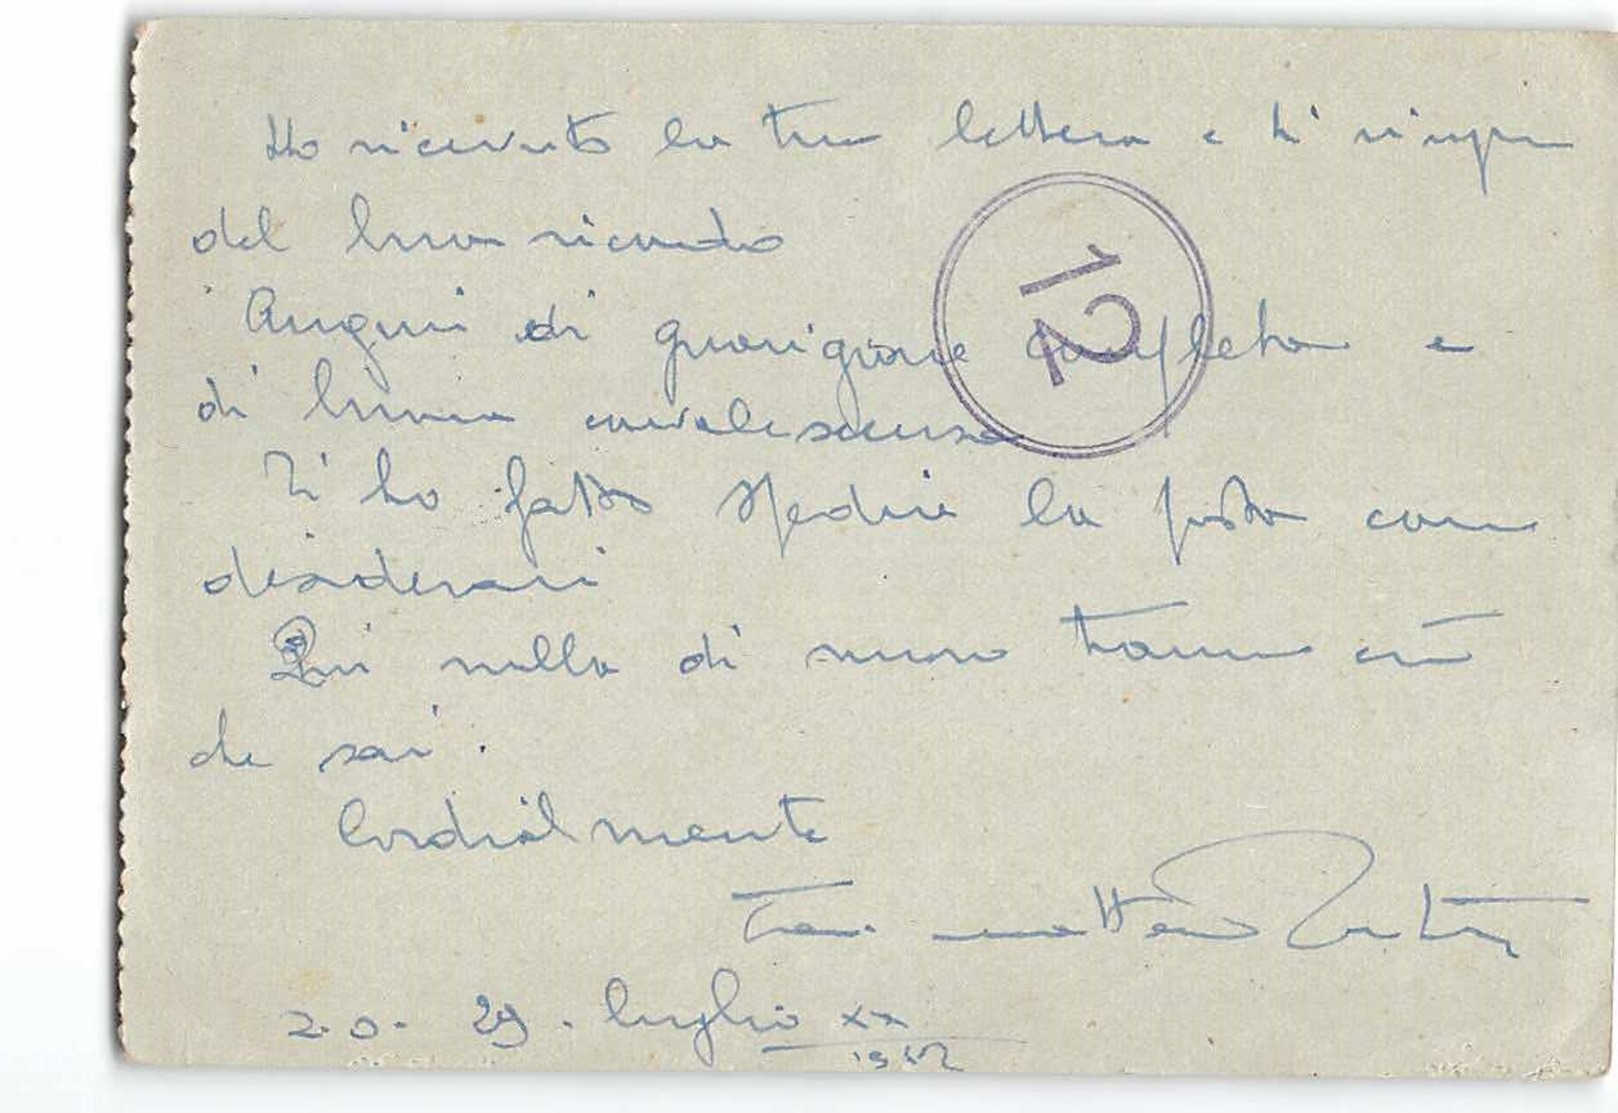 Ho ricevuto la tua lettera e ti ringra
del buon ricordo
Auguri di guarigione completa e
di buona convalescenza
Ti ho fatto spedire la posta come
desideravi
Qui nulla di nuovo tranne ciò
che sai.
Cordialmente
Ten. Matteo
Z.O. 29. luglio XX
1942
12